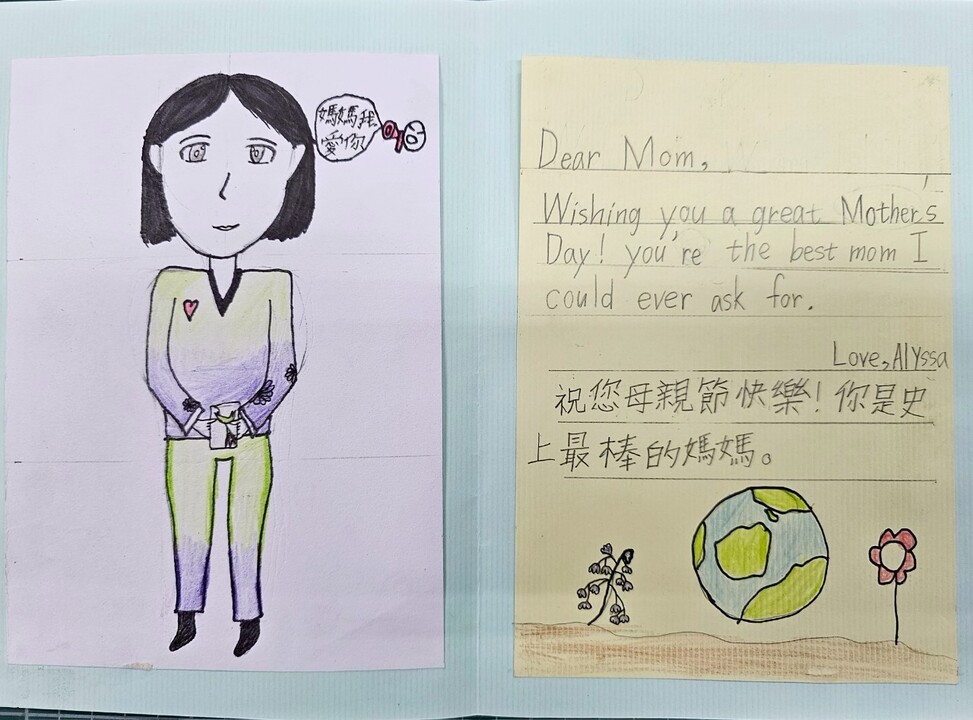 媽媽我
愛你
Dear Mom,
Wishing you a great Mother's
Day! you're the best mom I
could ever ask for.
Love, Alyssa
祝您母親節快樂！你是史
上最棒的媽媽。